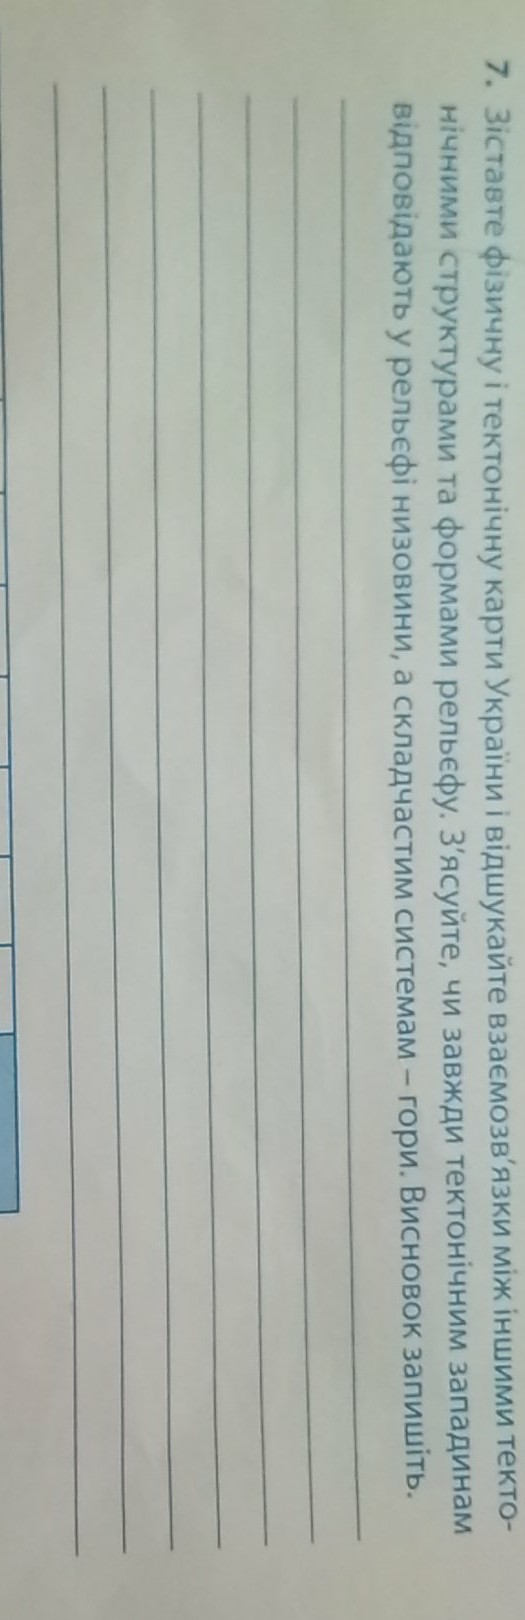 7. Зіставте фізичну і тектонічну карти України і відшукайте взаємозв'язки між іншими текто-
нічними структурами та формами рельєфу. З'ясуйте, чи завжди тектонічним западинам
відповідають у рельєфі низовини, а складчастим системам – гори. Висновок запишіть.